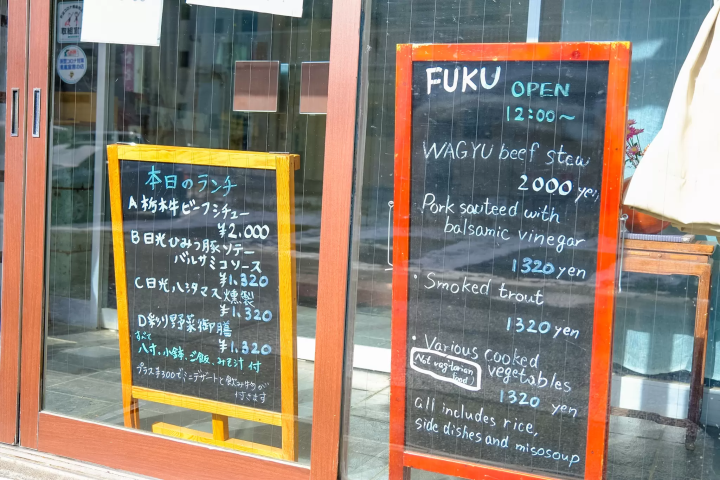 本日のランチ
A 栃木牛ビーフシチュー
¥2,000
B 日光ひみつ豚ソテー
バルサミコソース
¥1,320
C 日光八シタマス燻製
¥1,320
D 彩り野菜御膳
¥1,320
すべて
八寸、小鉢、ご飯、みそ汁 付
プラス¥300でミニデザートと飲み物が
付きます
FUKU OPEN
12:00~
WAGYU beef stew
2000 yen
Pork sauteed with
balsamic vinegar
1320 yen
・Smoked trout
1320 yen
・Various cooked
vegetables
(Not vegitarian
food)
1320 yen
all includes rice,
side dishes and misosoup